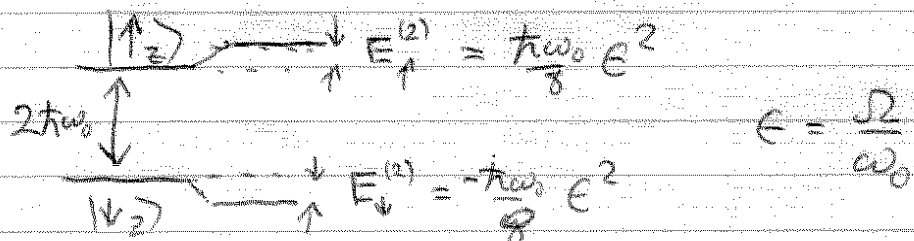 |↑z⟩ E↑^(2) = ħω₀/8 ϵ²
2ħω₀ ϵ = Ω/ω₀
|↓z⟩ E↓^(2) = -ħω₀/8 ϵ²